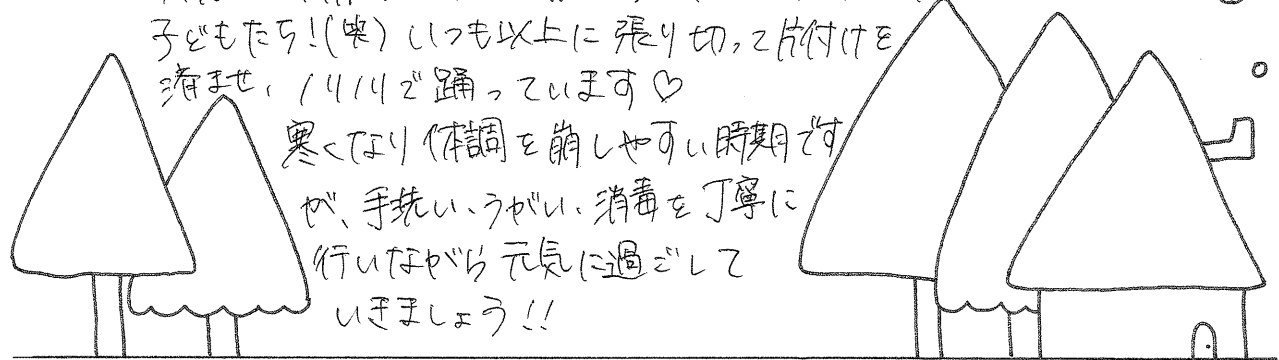 子どもたち!(笑) いつも以上に張り切って片付けを
済ませ、ノリノリで踊っています♡
寒くなり体調を崩しやすい時期です
が、手洗い、うがい、消毒を丁寧に
行いながら元気に過ごして
いきましょう!!